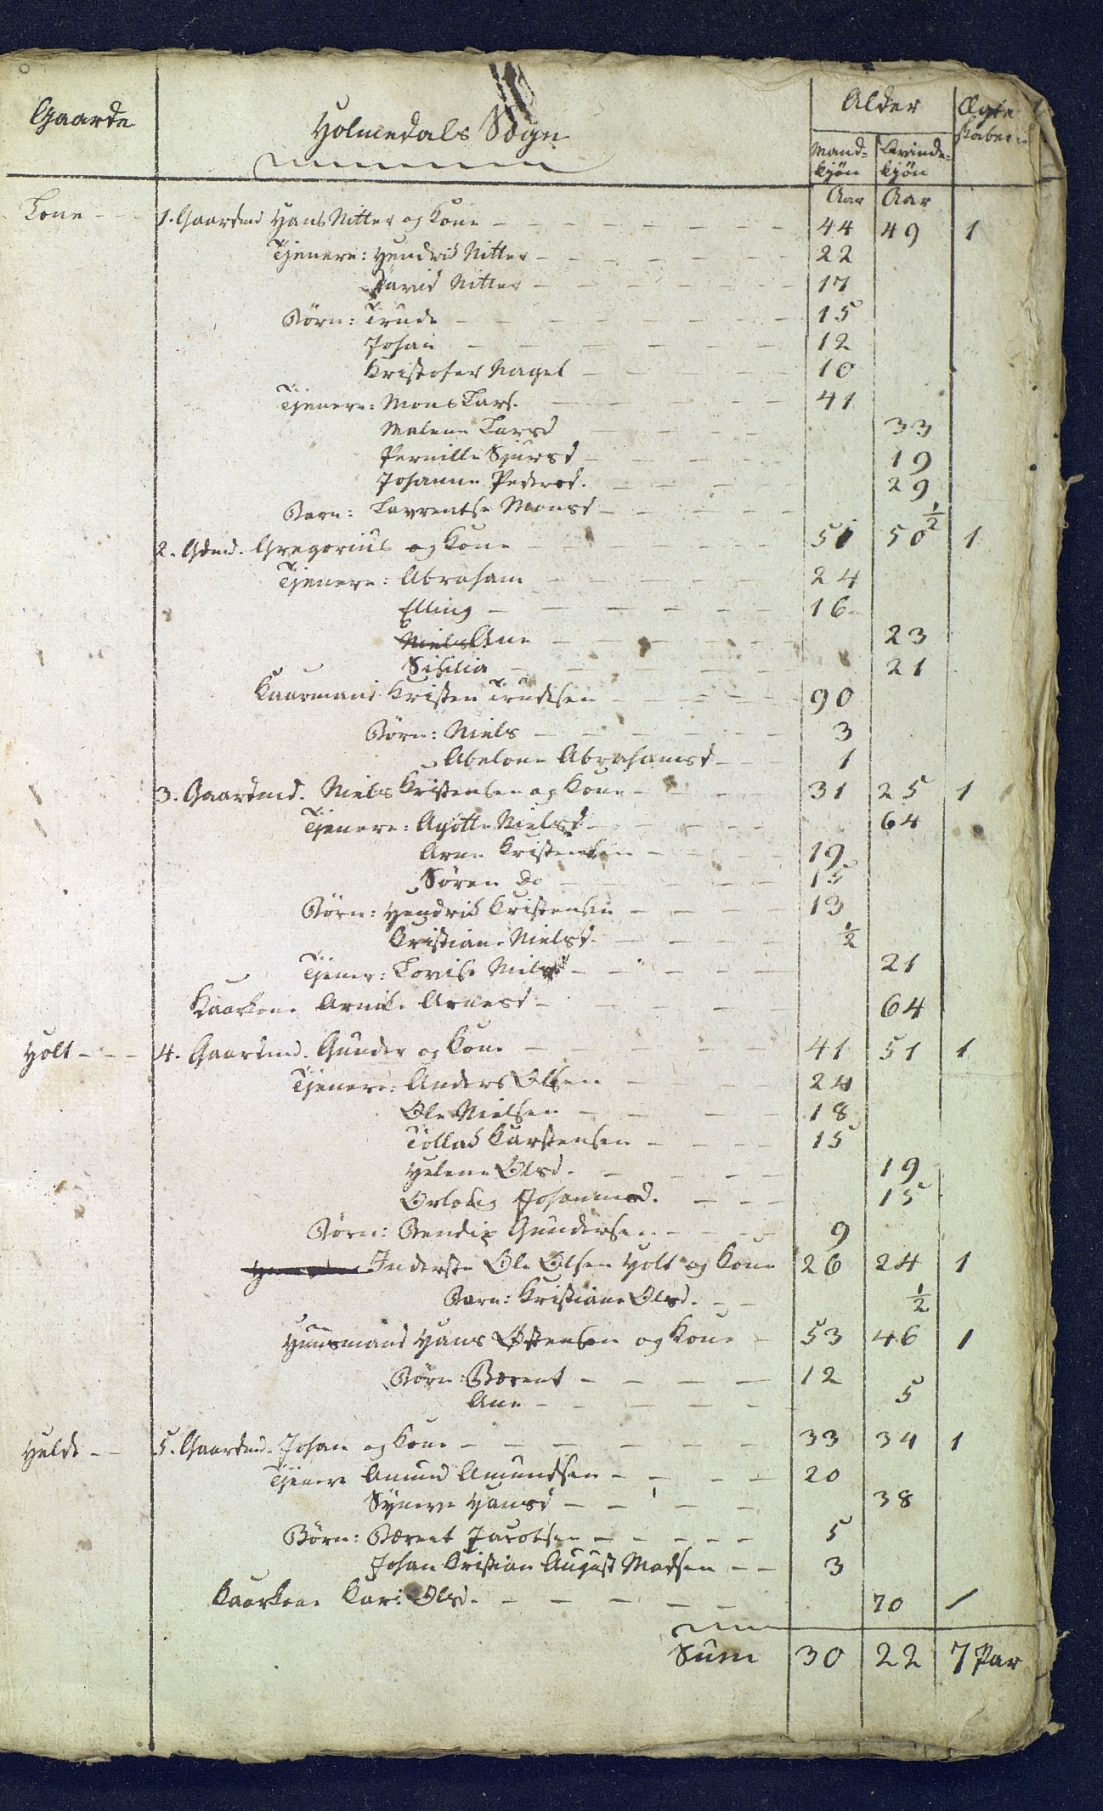 Gaarde Holmedals Sogn Alder Ægte
skaber
Mand- Kvinde-
kjøn kjøn
Aar Aar
Tone - - 1. Gaardmd Hans Nitter og Kone - - - 44 49 1
Tjenere: Hendrik Nitter - - - 22
David Nitter - - - 17
Børn: Trude - - - 15
Johan - - - 12
Kristofer Nagel - - - 10
Tjenere: Mons Lars. - - - 41
Malene Larsd - - - 33
Pernille Sjursd - - - 19
Johanne Pedersd. - - - 29
Barn: Lavrentse Monsd - - - 1/2
2. Gdmd. Gregorius og Kone - - - 51 50 1
Tjenere: Abraham - - - 24
Elling - - - 16
Niels Ane - - - 23
Sisilia - - - 21
Kaarmand Kristen Trudesen - - - 90
Børn: Niels - - - 3
Abelone Abrahamsd - - - 1
3. Gaardmd. Niels Kristensen og Kone - - - 31 25 1
Tjenere: Agotte Nielsd - - - 64
Arne Kristensen - - - 19
Søren do - - - 15
Børn: Hendrik Kristensen - - - 13
Kristiane Nielsd. - - - 1/2
Tjener: Lovise Nielsd - - - 21
Kaarkone Arnike Arnesd - - - 64
Holt - - - 4. Gaardmd. Gunder og Kone - - - 41 51 1
Tjenere: Anders Olsen - - - 24
Ole Nielsen - - - 18
Tollak Karstensen - - - 15
Helene Olsd. - - - 19
Johannesd. - - - 15
Børn: Bendix Gundersen - - - 9
Inderste Ole Olsen Holt og Kone 26 24 1
Barn: Kristiane Olsd. - - 1/2
Huusmand Hans Østensen og Kone - 53 46 1
Børn: Bærent - - - 12
Ane - - - 5
Hulde - - 5. Gaardmd. Johan og Kone - - - 33 34 1
Tjenere Amund Amundsen - - - 20
Synneve Hansd - - - 38
Børn: Bærent Jacobsen - - - 5
Johan Kristian August Madsen - - 3
Kaarkone Kari Olsd. - - - 70 /
Sum 30 22 7 Par